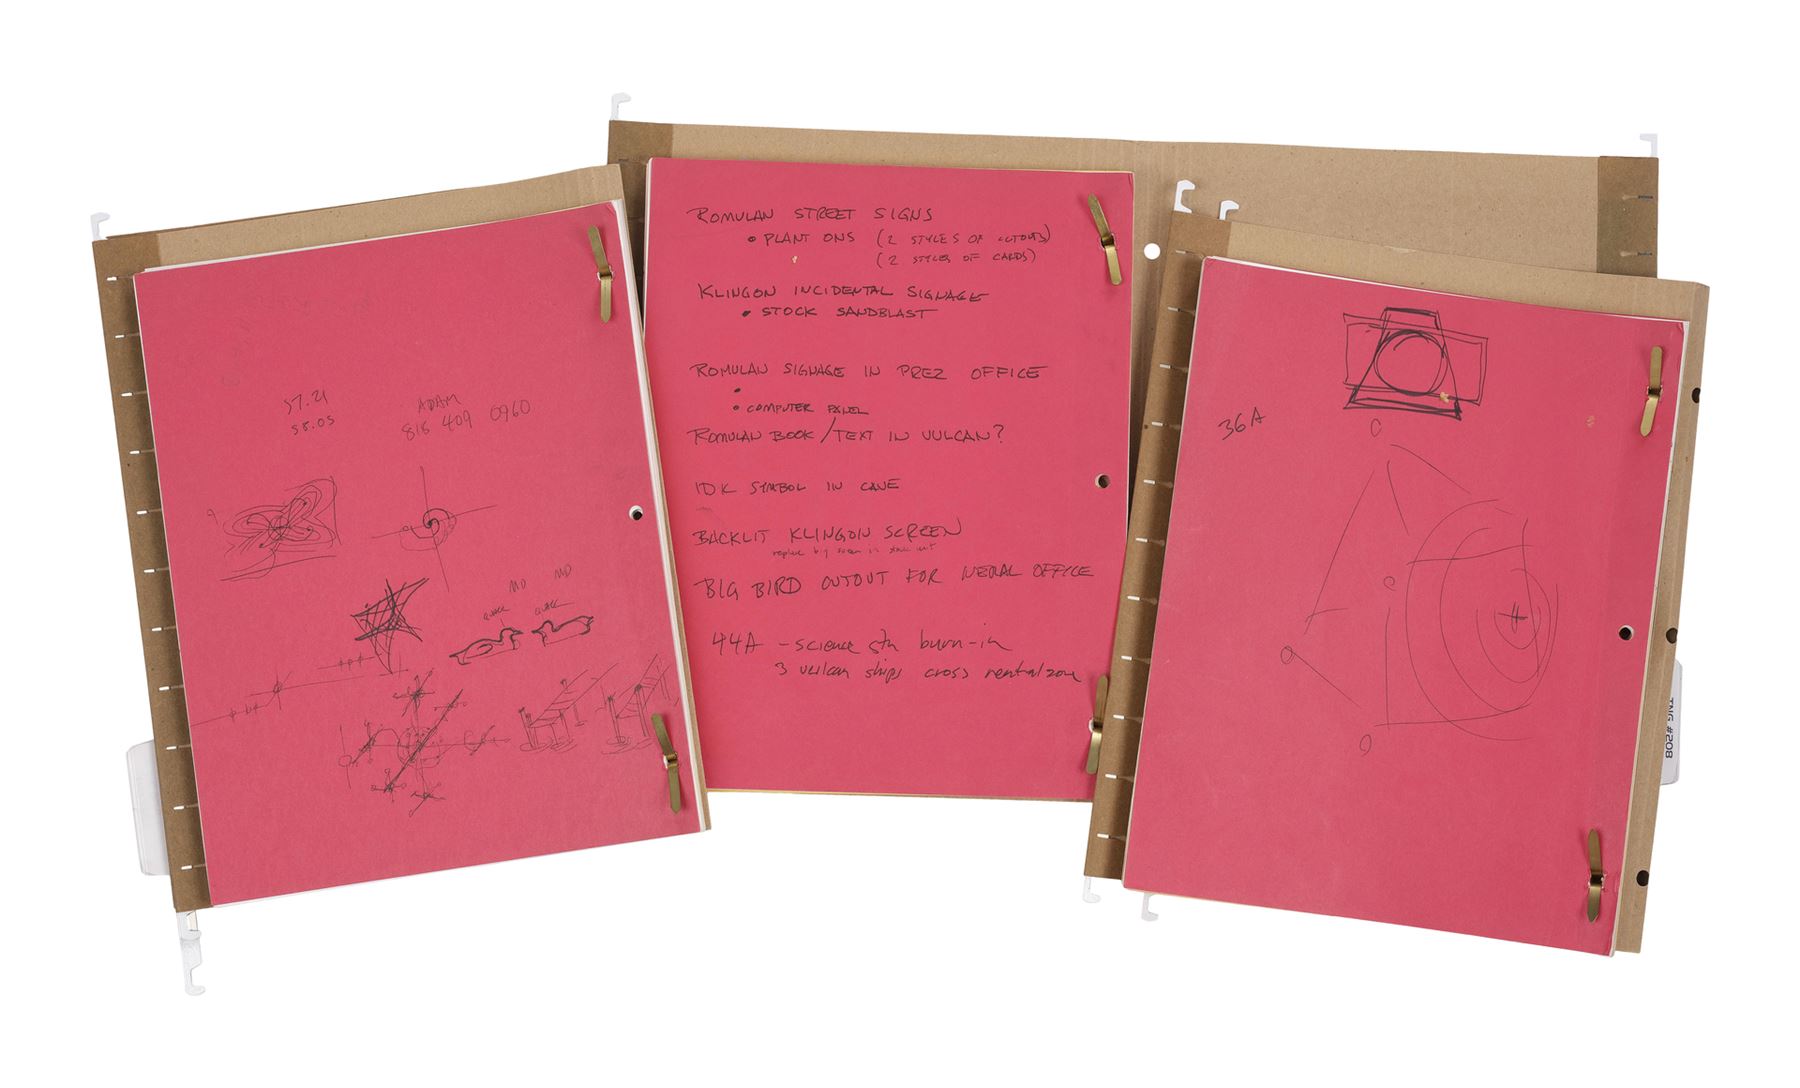 57.21
58.05
ADAM
818 409 0960
MD MD
QUACK QUACK
ROMULAN STREET SIGNS
• PLANT ONS (2 STYLES OF CUTOUTS)
(2 STYLES OF CARDS)
KLINGON INCIDENTAL SIGNAGE
• STOCK SANDBLAST
ROMULAN SIGNAGE IN PREZ OFFICE
•
• COMPUTER PANEL
ROMULAN BOOK/TEXT IN VULCAN?
IDK SYMBOL IN CAVE
BACKLIT KLINGON SCREEN
replace big screen in
BIG BIRD CUTOUT FOR NERAL OFFICE
44A - science stn burn-in
3 vulcan ships cross neutral zone
36A
TNG #208